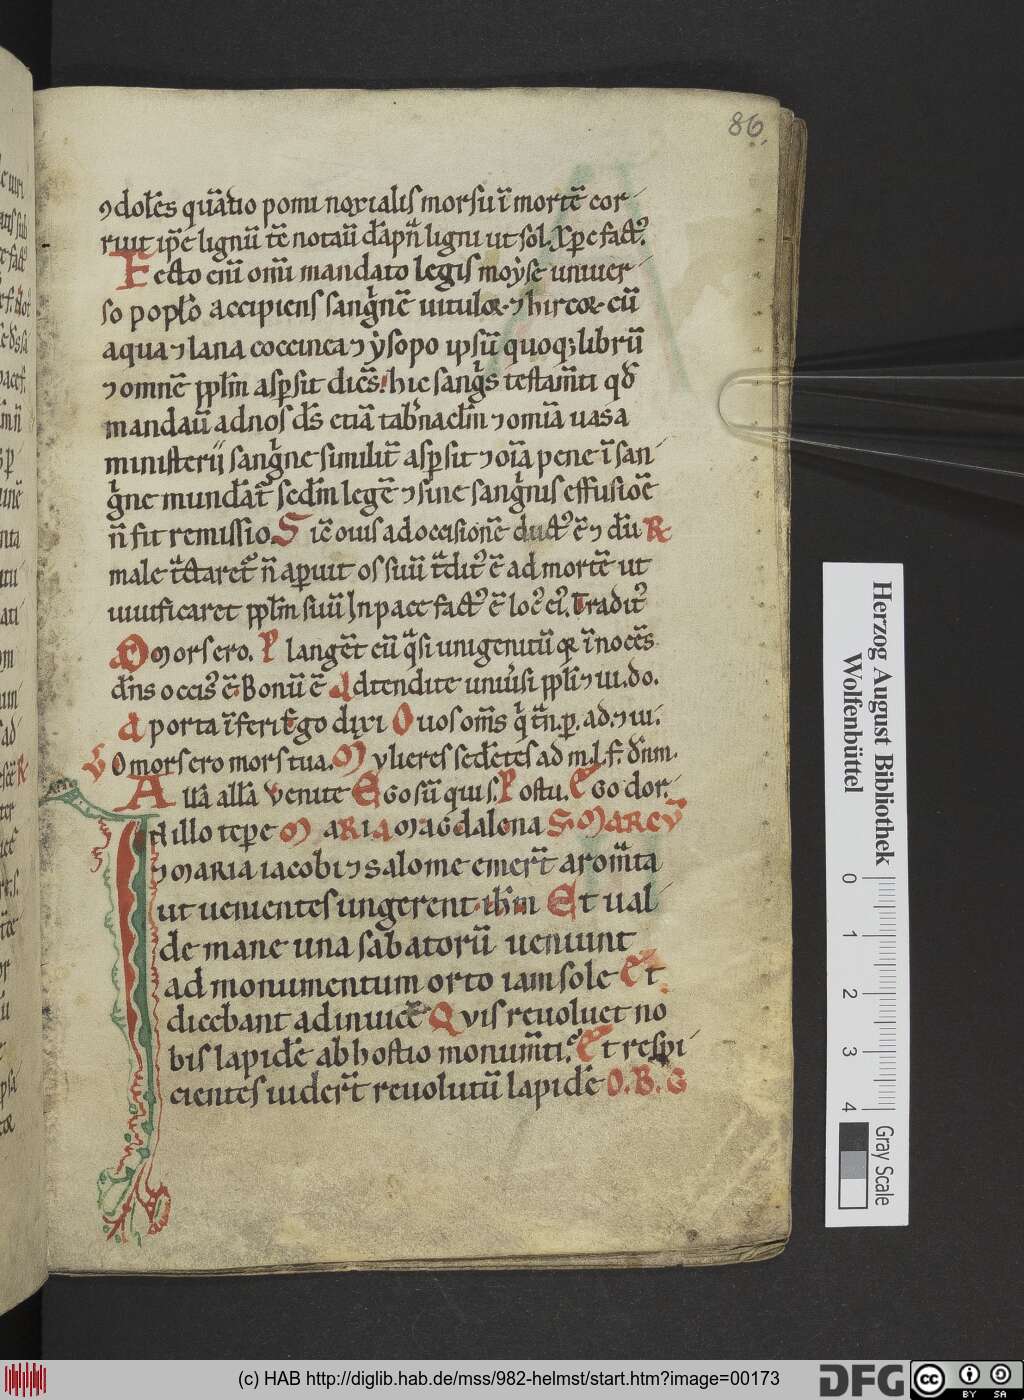 86
⁊ doles quādo pomi noxialis morsu ī mortē cor
ruit ip̄e lignū tē notaū dāpn̄ ligni ut sol. Xpe fact᷒.
Lecto enī omī mandato legis moẏse uniuer
so poplo accipiens sangnē uituloꝝ ⁊ hircoꝝ cū
aqua ⁊ lana coccinea ⁊ ẏsopo ipsū quoqꝫ librū
⁊ omnē pplm̄ aspsit dicēs. hic sangs testam̄ti qd̄
mandaū ad nos d̄s etiā tab̄naclm̄ ⁊ omīa uasa
ministerij sangne similit̄ aspsit ⁊ oīa pene ī san
gne mundāt᷒ sed̄m legē ⁊ sine sangnis effusiōe
n̄ fit remissio. Sic̄ ouis ad occisionē duct᷒ ē ⁊ dū R
male tctaret᷒ n̄ apuit os suū tdit᷒ ē ad mortē ut
uiuificaret pplm̄ suū In pace fact᷒ ē loc᷒ ei᷒. Tradit᷒
O mors ero. Plangēt cū qsi unigenitū qꝛ īnocēs
dn̄s occis᷒ ē Bonū ē Adtendite uniūsi ppli ⁊ ui. do.
A porta īferi Ego dixi O uos om̄s q tn̄. p. ad. ⁊ ui.
O mors ero mors tua. Mylieres sedētes ad m. l. f. dn̄m.
Alla alla Venite Ego sū qui s. Postu. Ego dor.
In illo tepe Maria Magdalena S Marcū
⁊ Maria iacobi ⁊ salome emer̄t aromta
ut uenientes ungerent ihm̄ Et ual
de mane una sabatorū ueniunt
ad monumentum orto iam sole Et
dicebant adinuicē Qvis reuoluet no
bis lapidē abhostio monum̄ti. Et respi
cientes uider̄t reuolutū lapidē O. B. G
Herzog August Bibliothek
Wolfenbüttel
0 1 2 3 4
Gray Scale
(c) HAB http://diglib.hab.de/mss/982-helmst/start.htm?image=00173
DFG
cc BY SA